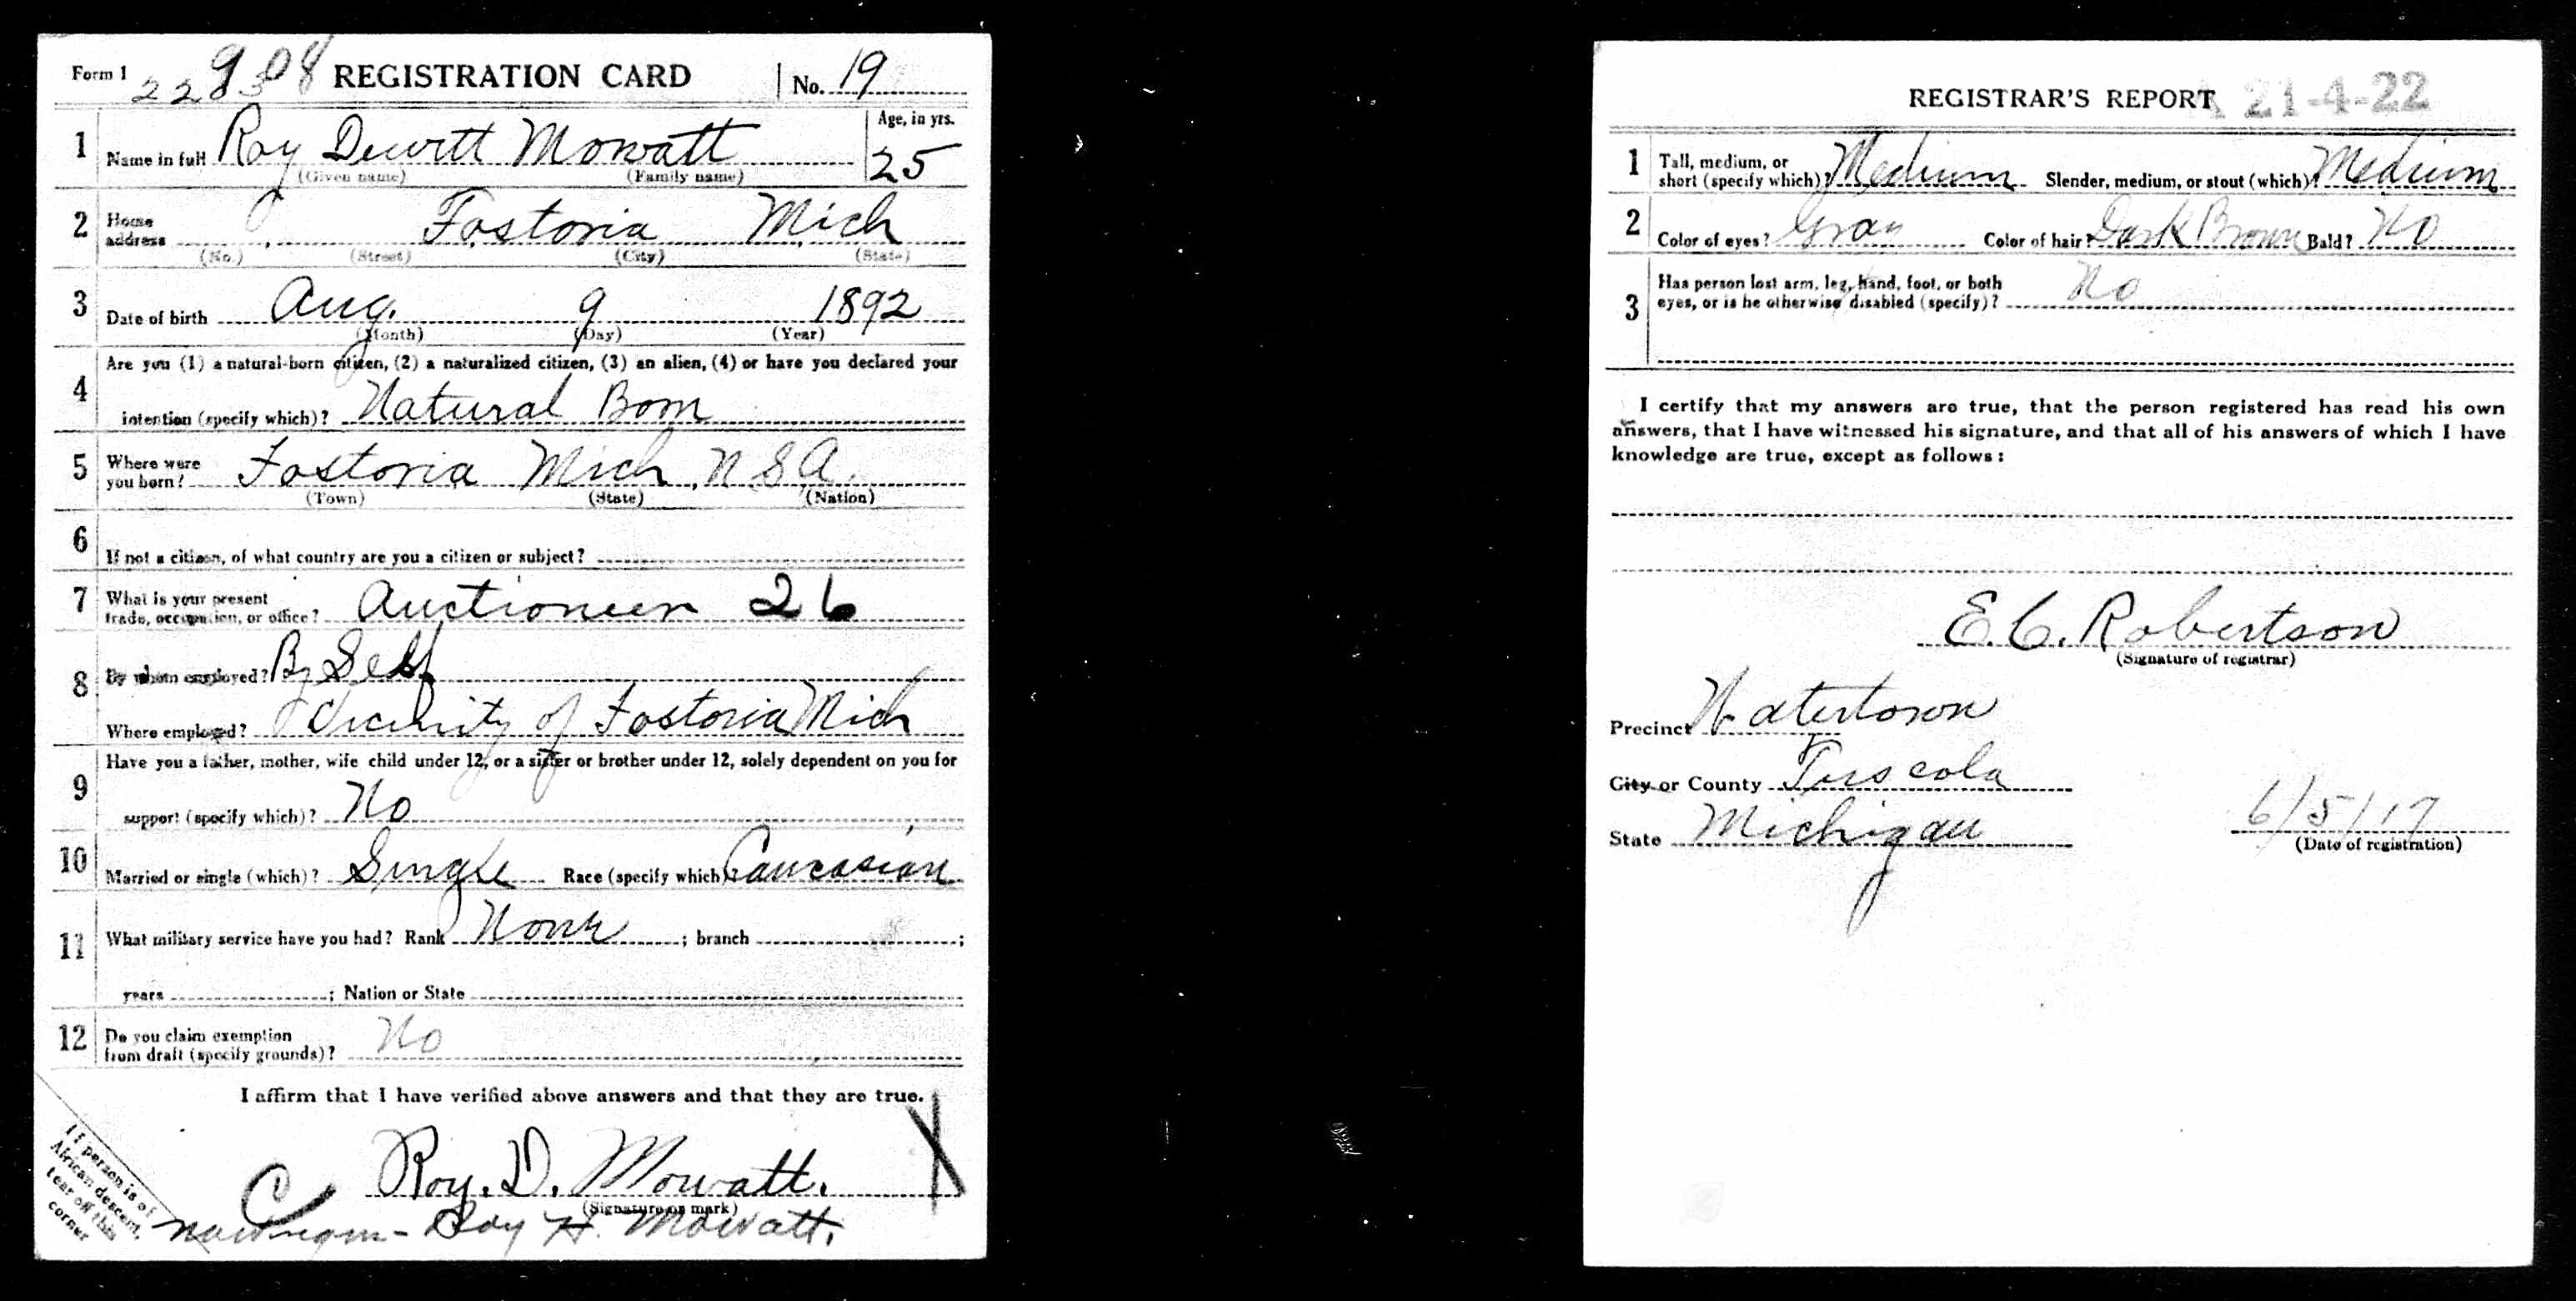 Form 1 REGISTRATION CARD No. 19
1 Name in full Roy Dewitt Mowatt Age, in yrs. 25
(Given name) (Family name)
2 Home address Fostoria Mich
(No.) (Street) (City) (State)
3 Date of birth Aug. 9 1892
(Month) (Day) (Year)
Are you (1) a natural-born citizen, (2) a naturalized citizen, (3) an alien, (4) or have you declared your
4 intention (specify which)? Natural Born
5 Where were you born? Fostoria Mich. U.S.A.
(Town) (State) (Nation)
6 If not a citizen, of what country are you a citizen or subject?
7 What is your present trade, occupation, or office? Auctioneer 26
8 By whom employed? By Self
Where employed? Vicinity of Fostoria Mich
Have you a father, mother, wife child under 12, or a sister or brother under 12, solely dependent on you for
9 support (specify which)? No
10 Married or single (which)? Single Race (specify which)? Caucasian
11 What military service have you had? Rank None ; branch ;
years ; Nation or State
12 Do you claim exemption from draft (specify grounds)? No
I affirm that I have verified above answers and that they are true.
Roy. D. Mowatt.
(Signature or mark)
Roy H. Mowatt.
If person is of
African descent,
tear off this
corner
REGISTRAR'S REPORT 21-4-22
1 Tall, medium, or short (specify which)? Medium Slender, medium, or stout (which)? Medium
2 Color of eyes? Gray Color of hair? Dark Brown Bald? No
3 Has person lost arm, leg, hand, foot, or both
eyes, or is he otherwise disabled (specify)? No
I certify that my answers are true, that the person registered has read his own
answers, that I have witnessed his signature, and that all of his answers of which I have
knowledge are true, except as follows:
E. C. Robertson
(Signature of registrar)
Precinct Watertown
City or County Tuscola
State Michigan 6/5/17
(Date of registration)